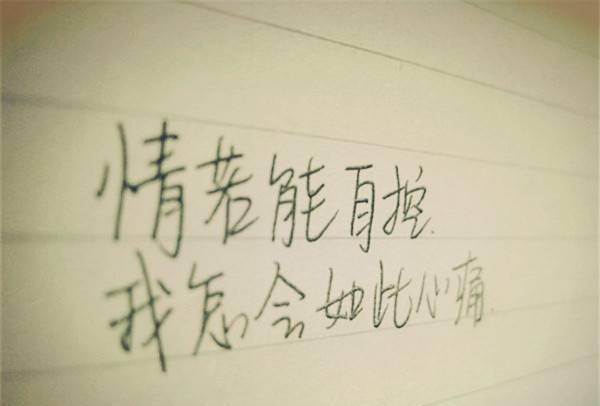 情若能自控.
我怎会如此心痛.